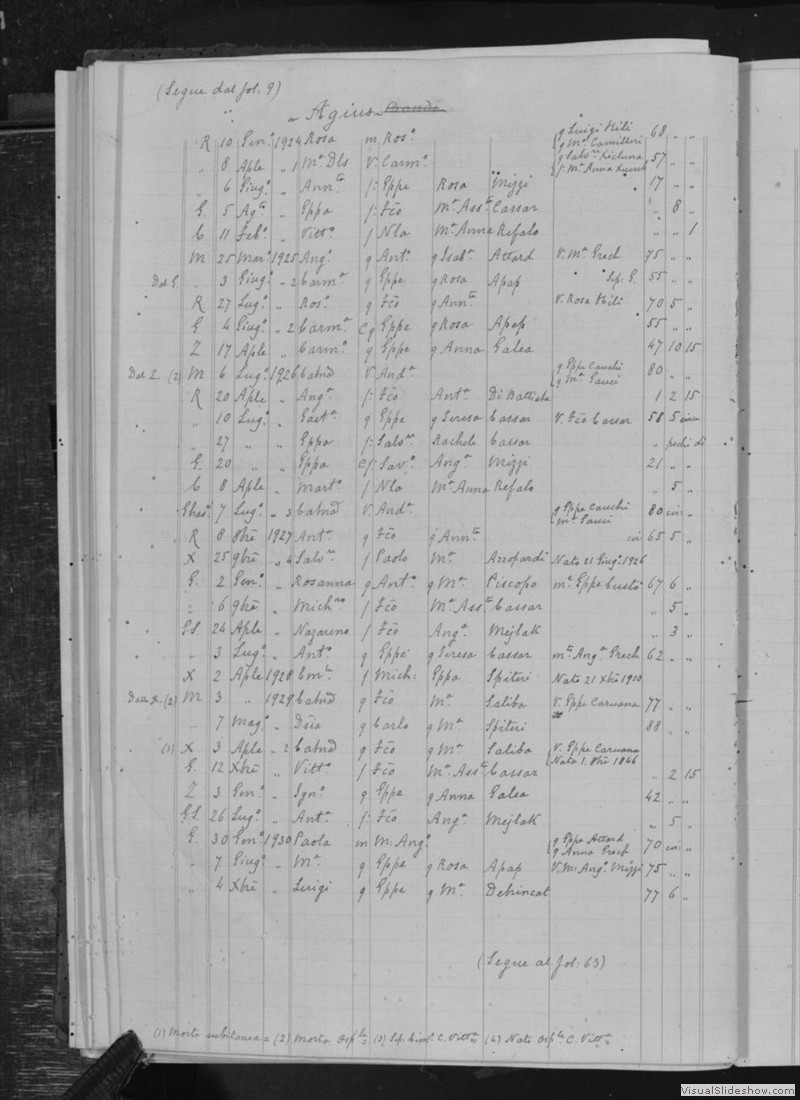 (Segue dal fol. 9)
" Agius
R 10 Gen.o 1924 Rosa m Ros.o { q Luigi Mili 68 " "
{ q M.a Camilleri
" 8 Aple " 1 M.a Dls V. Carm.o { q Salv.re Xicluna 57 " "
{ f: M.a Anna Xuereb
" 6 Giug.o " Ann.ta f: Eppe Rosa Mizzi 17 " "
G. 5 Ag.to " Eppa f: Fco M.a Ass.ta Cassar " 8 "
C 11 Feb.o " Vitt.o f Nlo M.a Anna Refalo " " 1
M 25 Mar.o 1925 Ang.o q Ant.o q Isab.a Attard V. M.a Grech 75 " "
Dal G. " 3 Giug.o " 2 Carm.a q Eppe q Rosa Apap Sep. G. 55 " "
R 27 Lug.o " Ros.o q Fco q Ann.ta V. Rosa Mili 70 5 "
G. 4 Giug.o " 2 Carm.a Cq Eppe q Rosa Apap 55 " "
Z 17 Aple " Carm.o q Eppe q Anna Galea 47 10 15
Dal Z. (2) M 6 Lug.o 1926 Catnd V. And.a { q Eppe Cauchi 80 " "
{ q M.a Gauci
R 20 Aple " Ang.a f: Fco Ant.a Di Battista 1 2 15
" 10 Lug.o " Gaet.a q Eppe q Teresa Cassar V. Fco Cassar 58 5 circa
" 27 " " Eppa f: Salv.re Rachele Cassar " pochi di
G. 20 " " Eppa Cf: Sav.o Ang.a Mizzi 21 " "
C 8 Aple " Mart.a f Nlo M.a Anna Refalo " 5 "
7 Lug.o " 3 Catnd V. And.a { q Eppe Cauchi 80 cir "
{ M.a Gauci
R 8 8bre 1927 Ant.a q Fco q Ann.ta cir 65 5 "
X 25 9bre " 4 Salv.re f Paolo M.a Azzopardi Nato 21 Giug.o 1926
G. 2 Gen.o " Rosanna q Ant.o q M.a Piscopo m.ta Eppe Custo 67 6 "
" 6 9bre " f Fco M.a Ass.ta Cassar " 5 "
GS. 24 Aple " Nazareno f: Fco Ang.a Mejlak " 3 "
" 3 Lug.o " Ant.o q Eppe q Teresa Cassar m.to Ang.a Grech 62 " "
X 2 Aple 1928 Em.le f Mich: Eppa Spiteri Nato 21 Xbre 1910
Dalla X. (2) M 3 " 1929 Catnd q Fco M.a Saliba V. Eppe Caruana 77 " "
" 7 Mag.o " q Carlo q M.a Spiteri 88 " "
(3) X 3 Aple " 2 Catnd q Fco q M.a Saliba { V. Eppe Caruana
{ Nata 1. 8bre 1846
G. 12 Xbre " Vitt.o f Fco M.a Ass.ta Cassar " 2 15
Z 3 Gen.o " Ign.o q Eppe q Anna Galea 42 " "
GS. 26 Lug.o " Ant.o f: Fco Ang.a Mejlak " 5 "
G. 30 Gen.o 1930 Paola m M. Ang.o { q Eppe Attard 70 cir "
{ q Anna Grech
" 7 Giug.o " M.a q Eppe q Rosa Apap V. M. Ang.o Mizzi 75 " "
" 4 Xbre " Luigi q Eppe q M.a Debrincat 77 6 "
(Segue al fol: 63)
(1) Morto subitanea = (2) Morta Osp.le = (3) Sep. Cimit.o C. Vitt.a = (4) Nato Osp.le C. Vitt.a =
VisualSlideshow.com